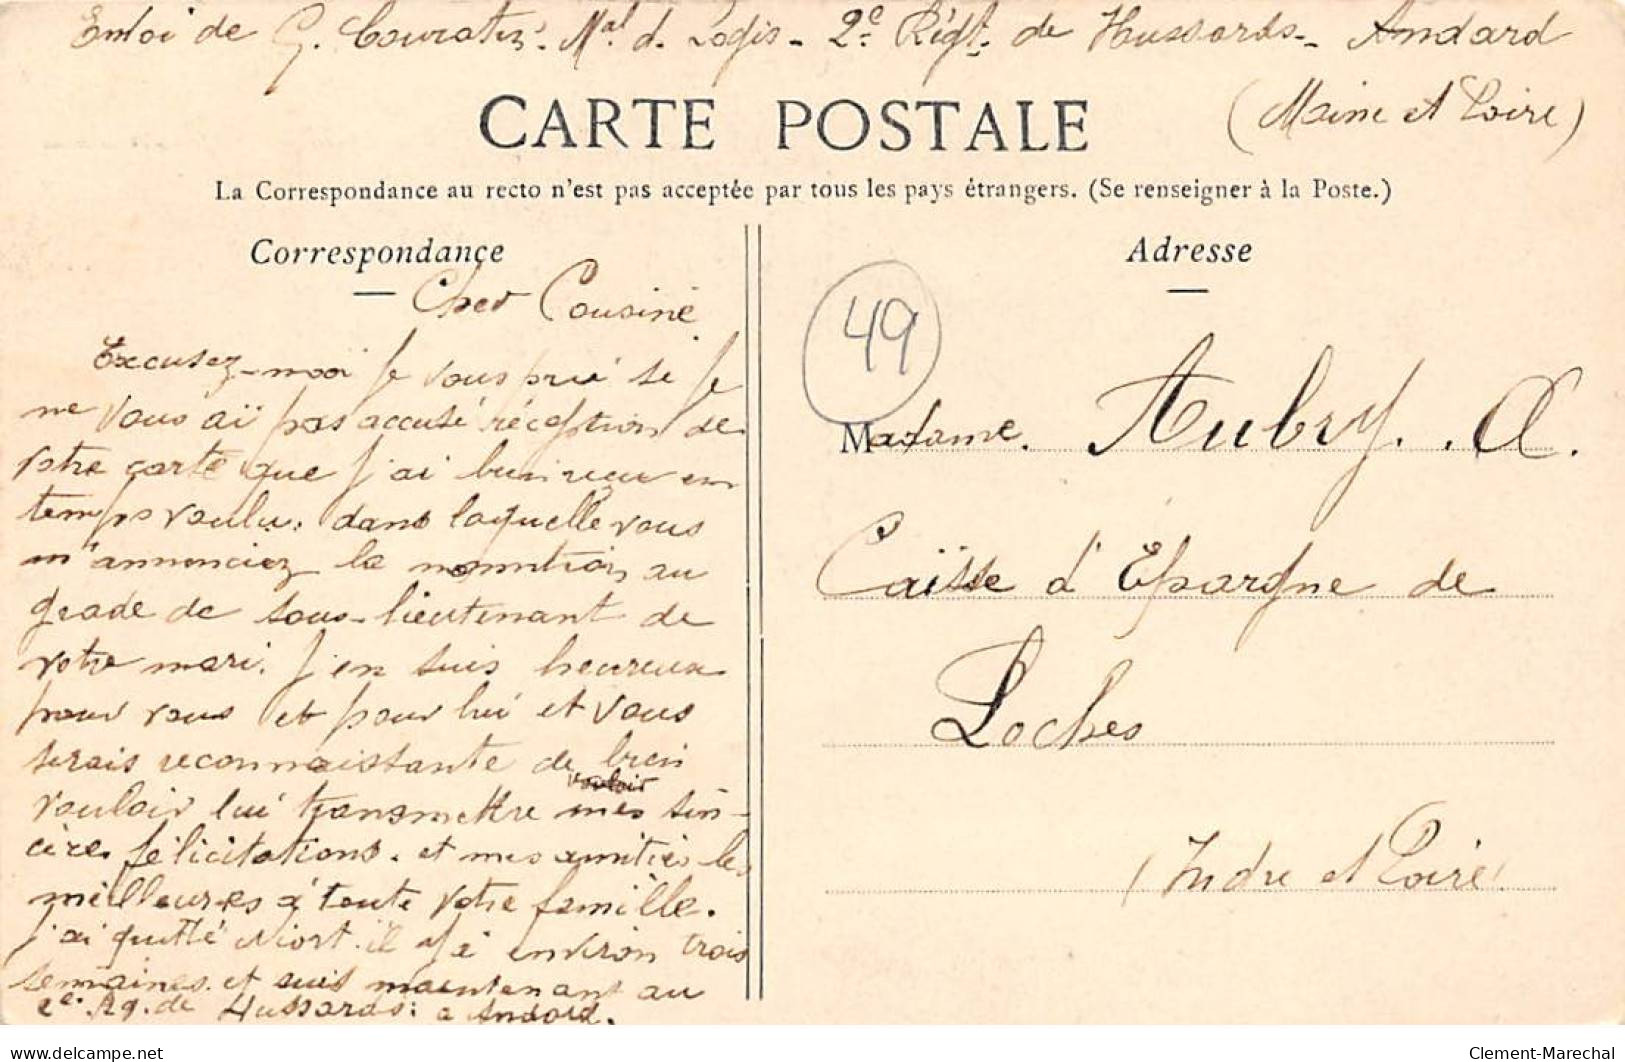 Envoi de G. Couratin. Mal d. Logis - 2e Régt. de Hussards - Andard
(Maine et Loire)
CARTE POSTALE
La Correspondance au recto n'est pas acceptée par tous les pays étrangers. (Se renseigner à la Poste.)
Correspondance
Cher Cousine
Excusez-moi je vous prie si je
ne vous ai pas accusé réception de
votre carte que j'ai bien reçu en
temps voulu. dans laquelle vous
m'annonciez la nomination au
grade de sous-lieutenant de
votre mari. J'en suis heureux
pour vous et pour lui et vous
serais reconnaissante de bien
vouloir
vouloir lui transmettre mes sin-
cères félicitations. et mes amitiés les
meilleures à toute votre famille.
j'ai quitté Niort il y a environ trois
semaines. et suis maintenant au
2e Rg. de Hussards: a Andard.
49
Adresse
Madame. Aubry. A.
Caisse d'Epargne de
Loches
(Indre et Loire)
Clement-Marechal